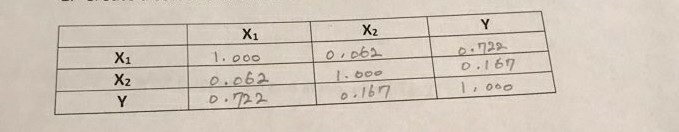 X₁ X₂ Y
X₁ 1.000 0.062 0.722
X₂ 0.062 1.000 0.167
Y 0.722 0.167 1.000